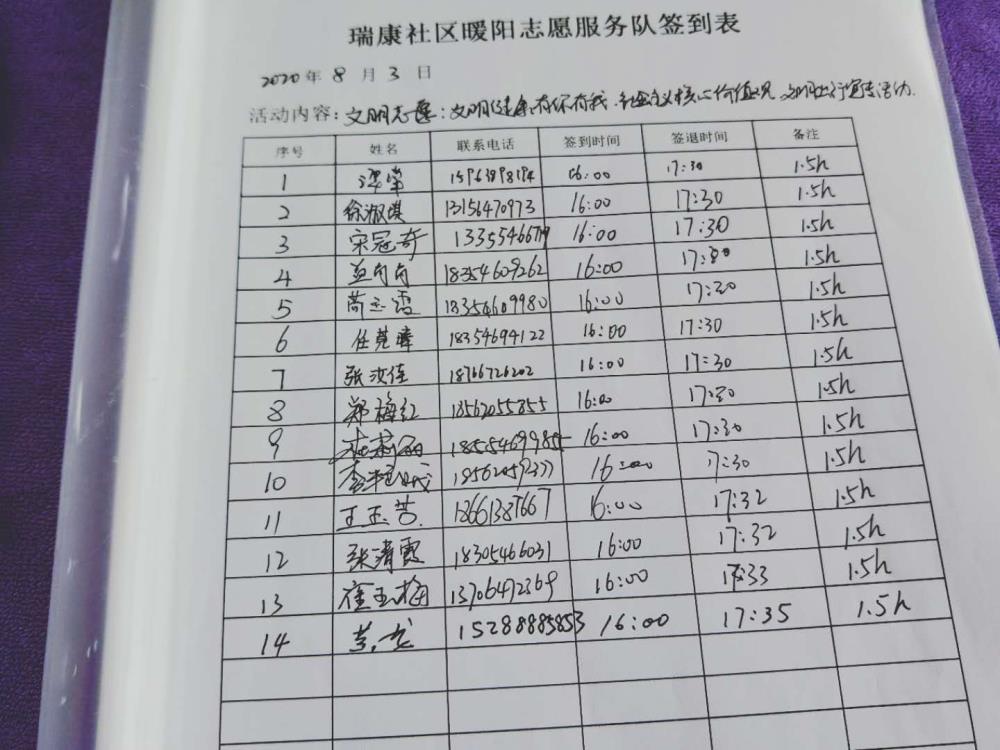 瑞康社区暖阳志愿服务队签到表
2020年8月3日
活动内容:文明志愿:文明健康,有你有我.社会主义核心价值观 文明出行宣传活动.
序号 姓名 联系电话 签到时间 签退时间 备注
1 16:00 17:30 1.5h
2 徐淑琪 13156470973 16:00 17:30 1.5h
3 宋冠奇 16:00 17:30 1.5h
4 18354609262 16:00 17:30 1.5h
5 18354609980 16:00 17:20 1.5h
6 18354694122 16:00 17:30 1.5h
7 张汝佳 18766726202 16:00 17:30 1.5h
8 郑梅红 18562055855 16:00 17:30 1.5h
9 18554699855 16:00 17:30 1.5h
10 16:00 17:30 1.5h
11 王玉芳 18661387667 16:00 17:32 1.5h
12 张清霞 18305466031 16:00 17:32 1.5h
13 崔玉梅 13706472369 16:00 17:33 1.5h
14 15288885853 16:00 17:35 1.5h